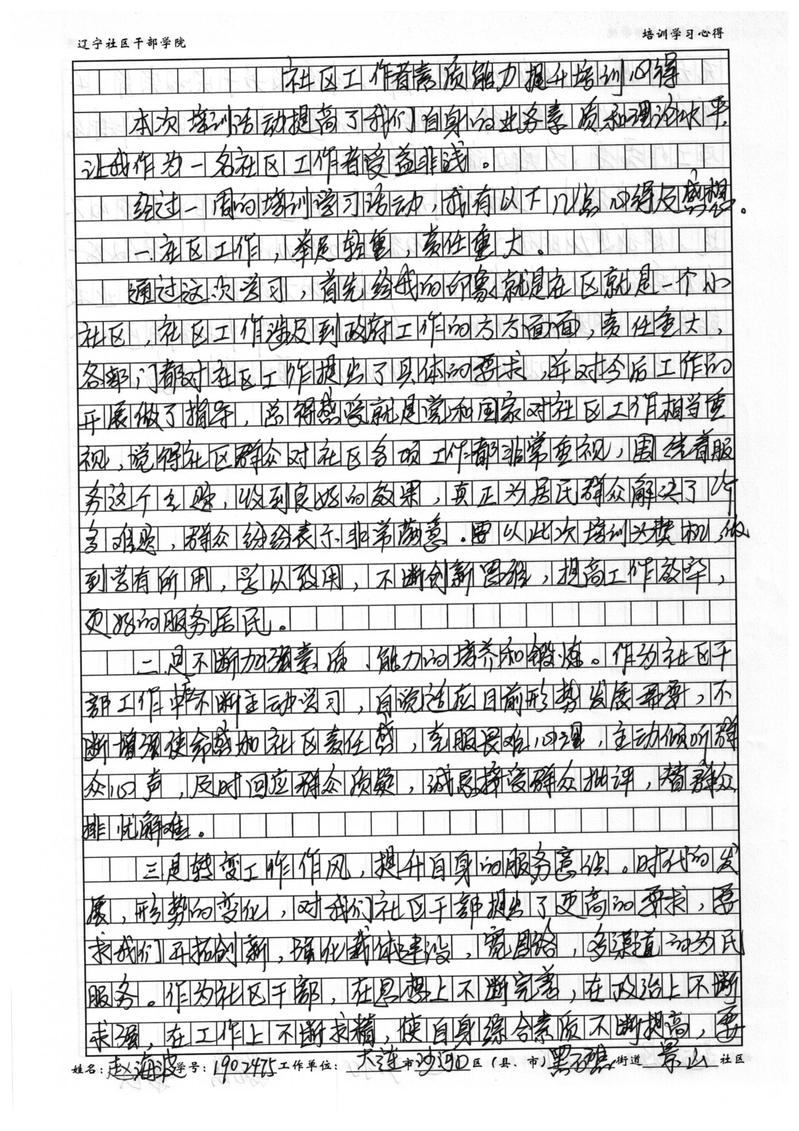 辽宁社区干部学院 培训学习心得
社区工作者素质能力提升培训心得
本次培训活动提高了我们自身的业务素质和理论水平,
让我作为一名社区工作者受益非浅。
经过一周的培训学习活动,我有以下几点心得及感想。
一.社区工作,举足轻重,责任重大。
通过这次学习,首先给我的印象就是社区就是一个小
社区,社区工作涉及到政府工作的方方面面,责任重大,
各部门都对社区工作提出了具体的要求,并对今后工作的
开展做了指导,总得感受就是党和国家对社区工作相当重
视,觉得社区群众对社区各项工作都非常重视,围绕着服
务这个主题,收到良好的效果,真正为居民群众解决了许
多难题,群众纷纷表示非常满意。要以此次培训为契机,做
到学有所用,学以致用,不断创新思维,提高工作效率,
更好的服务居民。
二是不断加强素质、能力的培养和锻炼。作为社区干
部工作中不断主动学习,自觉适应目前形势发展需要,不
断增强使命感和社区责任感,克服畏难心理,主动倾听群
众心声,及时回应群众质疑,诚恳接受群众批评,替群众
排忧解难。
三是转变工作作风,提升自身的服务意识。时代的发
展,形势的变化,对我们社区干部提出了更高的要求,要
求我们开拓创新,强化载体建设,宽思路,多渠道的为民
服务。作为社区干部,在思想上不断完善,在政治上不断
求强,在工作上不断求精,使自身综合素质不断提高,要
姓名:赵海波 学号:1902475 工作单位: 大连 市 沙河口 区(县、市) 黑石礁 街道 景山 社区